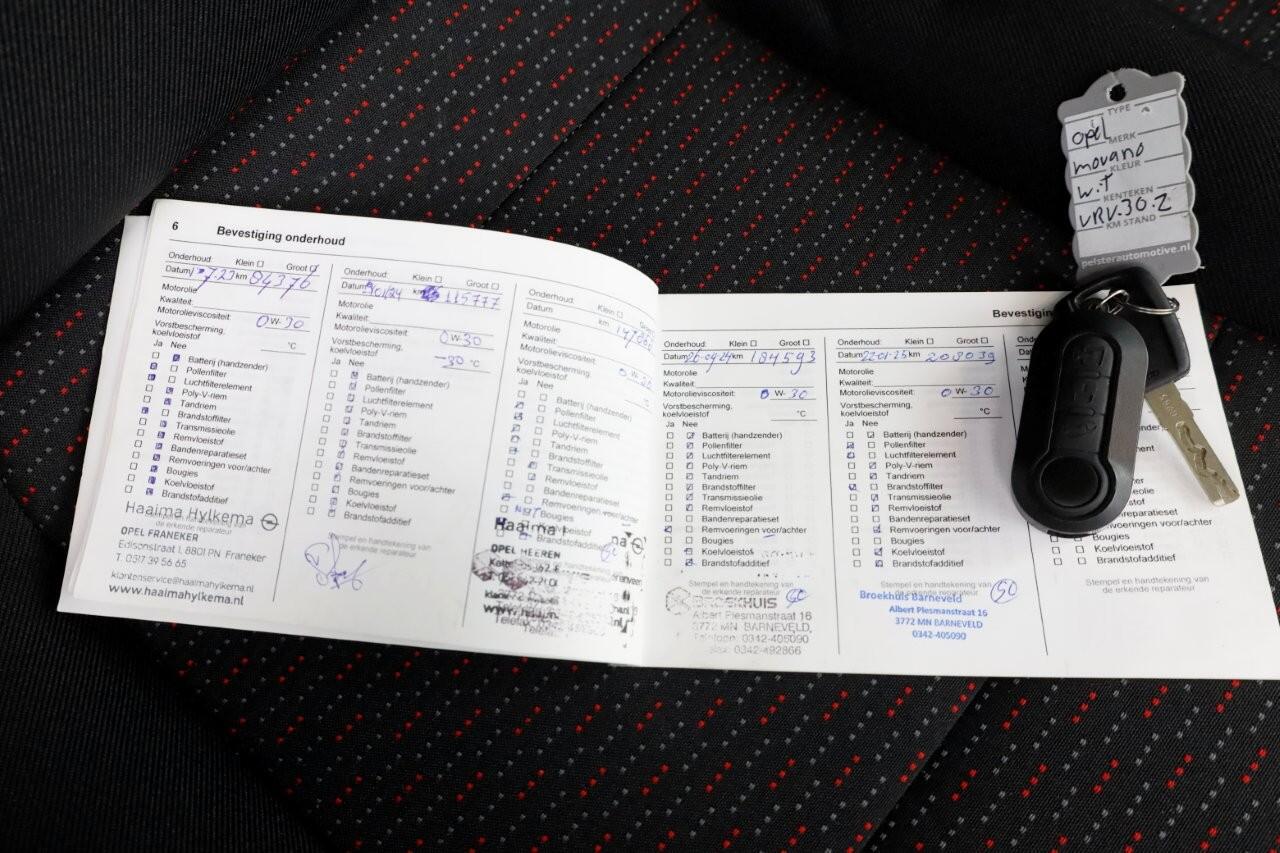 6 Bevestiging onderhoud
Onderhoud: Klein Groot
Datum 7.23 km 84376
Motorolie
Kwaliteit:
Motorolieviscositeit: 0 W- 30
Vorstbescherming, °C
koelvloeistof
Ja Nee
Batterij (handzender)
Pollenfilter
Luchtfilterelement
Poly-V-riem
Tandriem
Brandstoffilter
Transmissieolie
Remvloeistof
Bandenreparatieset
Remvoeringen voor/achter
Bougies
Koelvloeistof
Brandstofadditief
Haaima Hylkema
de erkende reparateur
OPEL FRANEKER
Edisonstraat 1, 8801 PN Franeker
T. 0317 39 56 65
klantenservice@haaimahylkema.nl
www.haaimahylkema.nl
Onderhoud: Klein Groot
Datum /24 km 115777
Motorolie
Kwaliteit:
Motorolieviscositeit: 0 W-30
Vorstbescherming, -30 °C
koelvloeistof
Ja Nee
Batterij (handzender)
Pollenfilter
Luchtfilterelement
Poly-V-riem
Tandriem
Brandstoffilter
Transmissieolie
Remvloeistof
Bandenreparatieset
Remvoeringen voor/achter
Bougies
Koelvloeistof
Brandstofadditief
Stempel en handtekening van
de erkende reparateur
Onderhoud: Klein Groot
Datum km
Motorolie
Kwaliteit:
Motorolieviscositeit:
Vorstbescherming,
koelvloeistof
Ja Nee
Batterij (handzender)
Pollenfilter
Luchtfilterelement
Poly-V-riem
Tandriem
Brandstoffilter
Transmissieolie
Remvloeistof
Bandenreparatieset
Remvoeringen voor/achter
Bougies
Brandstofadditief
OPEL HEEREN
Bevestigin
Onderhoud: Klein Groot
Datum 26-09-24 km 184593
Motorolie
Kwaliteit:
Motorolieviscositeit: 0 W- 30
Vorstbescherming, °C
koelvloeistof
Ja Nee
Batterij (handzender)
Pollenfilter
Luchtfilterelement
Poly-V-riem
Tandriem
Brandstoffilter
Transmissieolie
Remvloeistof
Bandenreparatieset
Remvoeringen voor/achter
Bougies
Koelvloeistof
Brandstofadditief
Stempel en handtekening van
de erkende reparateur
BROEKHUIS
Albert Plesmanstraat 16
3772 MN BARNEVELD,
Telefoon: 0342-405090
Fax: 0342-492866
Onderhoud: Klein Groot
Datum 22-01-25 km 208039
Motorolie
Kwaliteit:
Motorolieviscositeit: 0 W- 30
Vorstbescherming, °C
koelvloeistof
Ja Nee
Batterij (handzender)
Pollenfilter
Luchtfilterelement
Poly-V-riem
Tandriem
Brandstoffilter
Transmissieolie
Remvloeistof
Bandenreparatieset
Remvoeringen voor/achter
Bougies
Koelvloeistof
Brandstofadditief
Stempel en handtekening van
de erkende reparateur
Broekhuis Barneveld
Albert Plesmanstraat 16
3772 MN BARNEVELD
0342-405090
Bougies
Koelvloeistof
Brandstofadditief
Stempel en handtekening van
de erkende reparateur
TYPE
opel
MERK
movano
KLEUR
w.t
KENTEKEN
VRV.30.Z
KM STAND
pelsterautomotive.nl